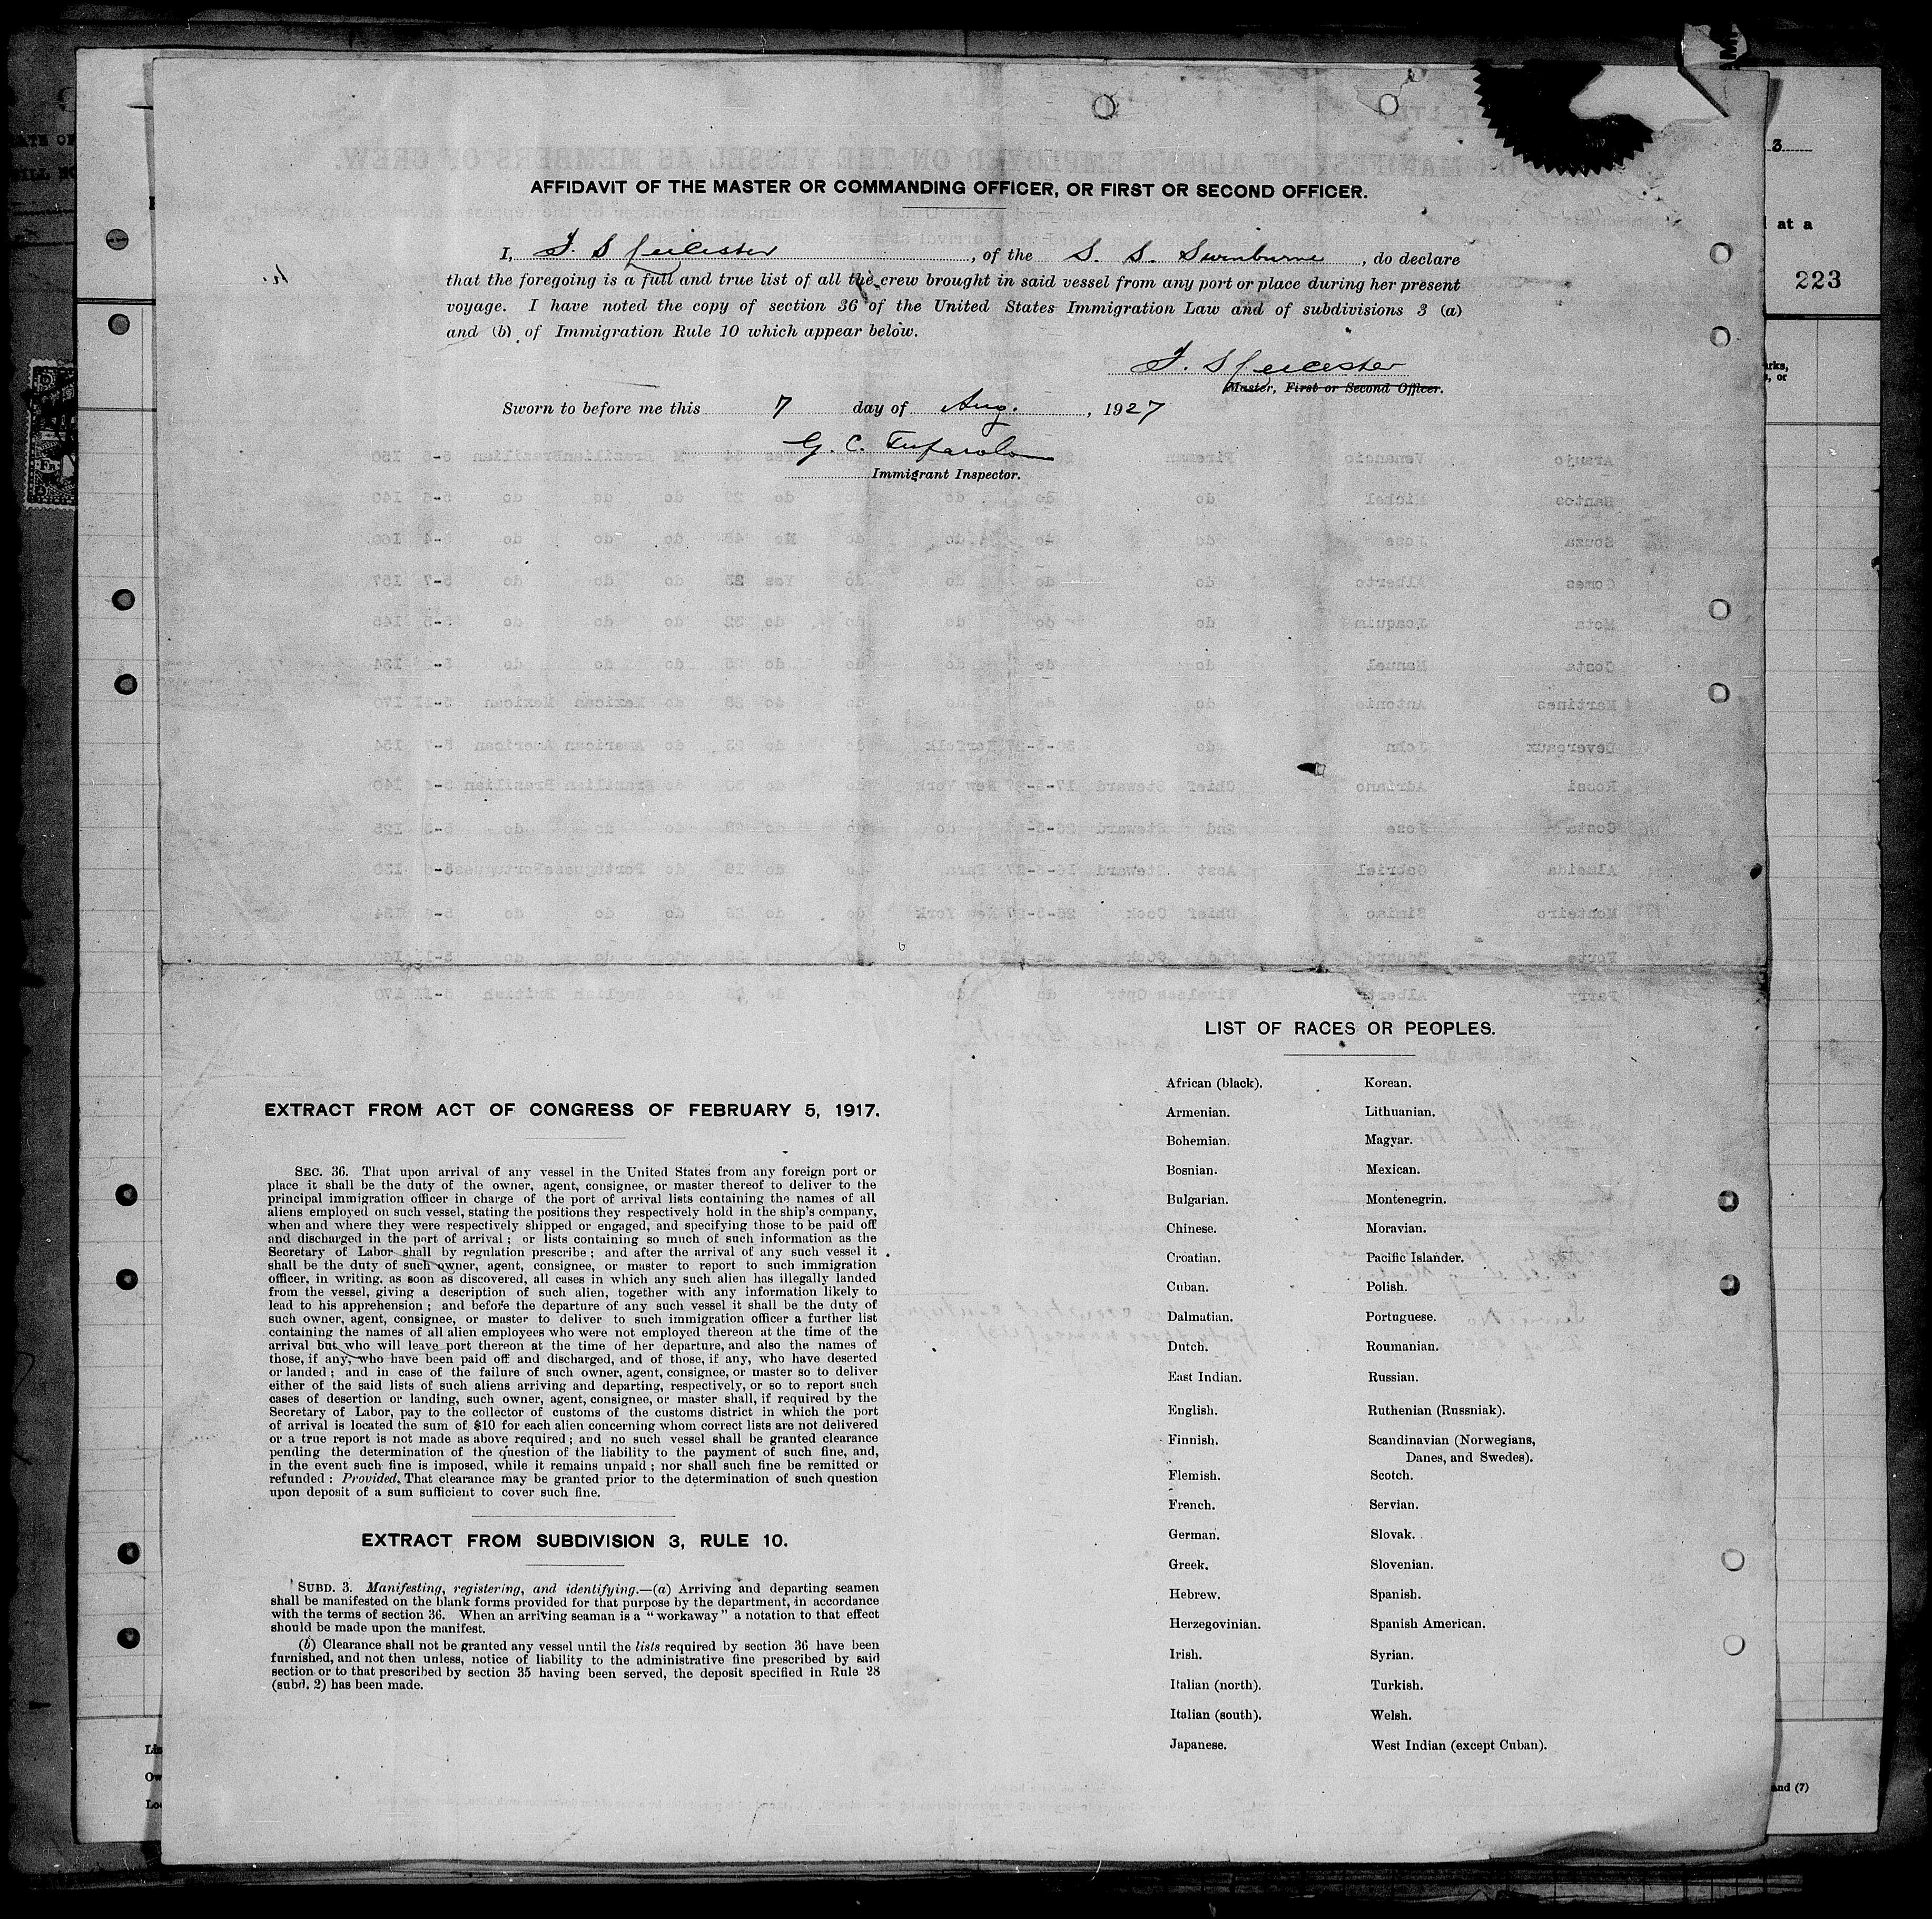 AFFIDAVIT OF THE MASTER OR COMMANDING OFFICER, OR FIRST OR SECOND OFFICER.
I, J. S. Leicester, of the S. S. Swinburne, do declare
that the foregoing is a full and true list of all the crew brought in said vessel from any port or place during her present
voyage. I have noted the copy of section 36 of the United States Immigration Law and of subdivisions 3 (a)
and (b) of Immigration Rule 10 which appear below.
J. S. Leicester
Master, First or Second Officer.
Sworn to before me this 7 day of Aug., 1927
G. C.
Immigrant Inspector.
3
at a
223
EXTRACT FROM ACT OF CONGRESS OF FEBRUARY 5, 1917.
SEC. 36. That upon arrival of any vessel in the United States from any foreign port or
place it shall be the duty of the owner, agent, consignee, or master thereof to deliver to the
principal immigration officer in charge of the port of arrival lists containing the names of all
aliens employed on such vessel, stating the positions they respectively hold in the ship's company,
when and where they were respectively shipped or engaged, and specifying those to be paid off
and discharged in the port of arrival; or lists containing so much of such information as the
Secretary of Labor shall by regulation prescribe; and after the arrival of any such vessel it
shall be the duty of such owner, agent, consignee, or master to report to such immigration
officer, in writing, as soon as discovered, all cases in which any such alien has illegally landed
from the vessel, giving a description of such alien, together with any information likely to
lead to his apprehension; and before the departure of any such vessel it shall be the duty of
such owner, agent, consignee, or master to deliver to such immigration officer a further list
containing the names of all alien employees who were not employed thereon at the time of the
arrival but who will leave port thereon at the time of her departure, and also the names of
those, if any, who have been paid off and discharged, and of those, if any, who have deserted
or landed; and in case of the failure of such owner, agent, consignee, or master so to deliver
either of the said lists of such aliens arriving and departing, respectively, or so to report such
cases of desertion or landing, such owner, agent, consignee, or master shall, if required by the
Secretary of Labor, pay to the collector of customs of the customs district in which the port
of arrival is located the sum of $10 for each alien concerning whom correct lists are not delivered
or a true report is not made as above required; and no such vessel shall be granted clearance
pending the determination of the question of the liability to the payment of such fine, and,
in the event such fine is imposed, while it remains unpaid; nor shall such fine be remitted or
refunded: Provided, That clearance may be granted prior to the determination of such question
upon deposit of a sum sufficient to cover such fine.
EXTRACT FROM SUBDIVISION 3, RULE 10.
SUBD. 3. Manifesting, registering, and identifying.—(a) Arriving and departing seamen
shall be manifested on the blank forms provided for that purpose by the department, in accordance
with the terms of section 36. When an arriving seaman is a "workaway" a notation to that effect
should be made upon the manifest.
(b) Clearance shall not be granted any vessel until the lists required by section 36 have been
furnished, and not then unless, notice of liability to the administrative fine prescribed by said
section or to that prescribed by section 35 having been served, the deposit specified in Rule 28
(subd. 2) has been made.
LIST OF RACES OR PEOPLES.
African (black). Korean.
Armenian. Lithuanian.
Bohemian. Magyar.
Bosnian. Mexican.
Bulgarian. Montenegrin.
Chinese. Moravian.
Croatian. Pacific Islander.
Cuban. Polish.
Dalmatian. Portuguese.
Dutch. Roumanian.
East Indian. Russian.
English. Ruthenian (Russniak).
Finnish. Scandinavian (Norwegians,
Danes, and Swedes).
Flemish. Scotch.
French. Servian.
German. Slovak.
Greek. Slovenian.
Hebrew. Spanish.
Herzegovinian. Spanish American.
Irish. Syrian.
Italian (north). Turkish.
Italian (south). Welsh.
Japanese. West Indian (except Cuban).
and (7)